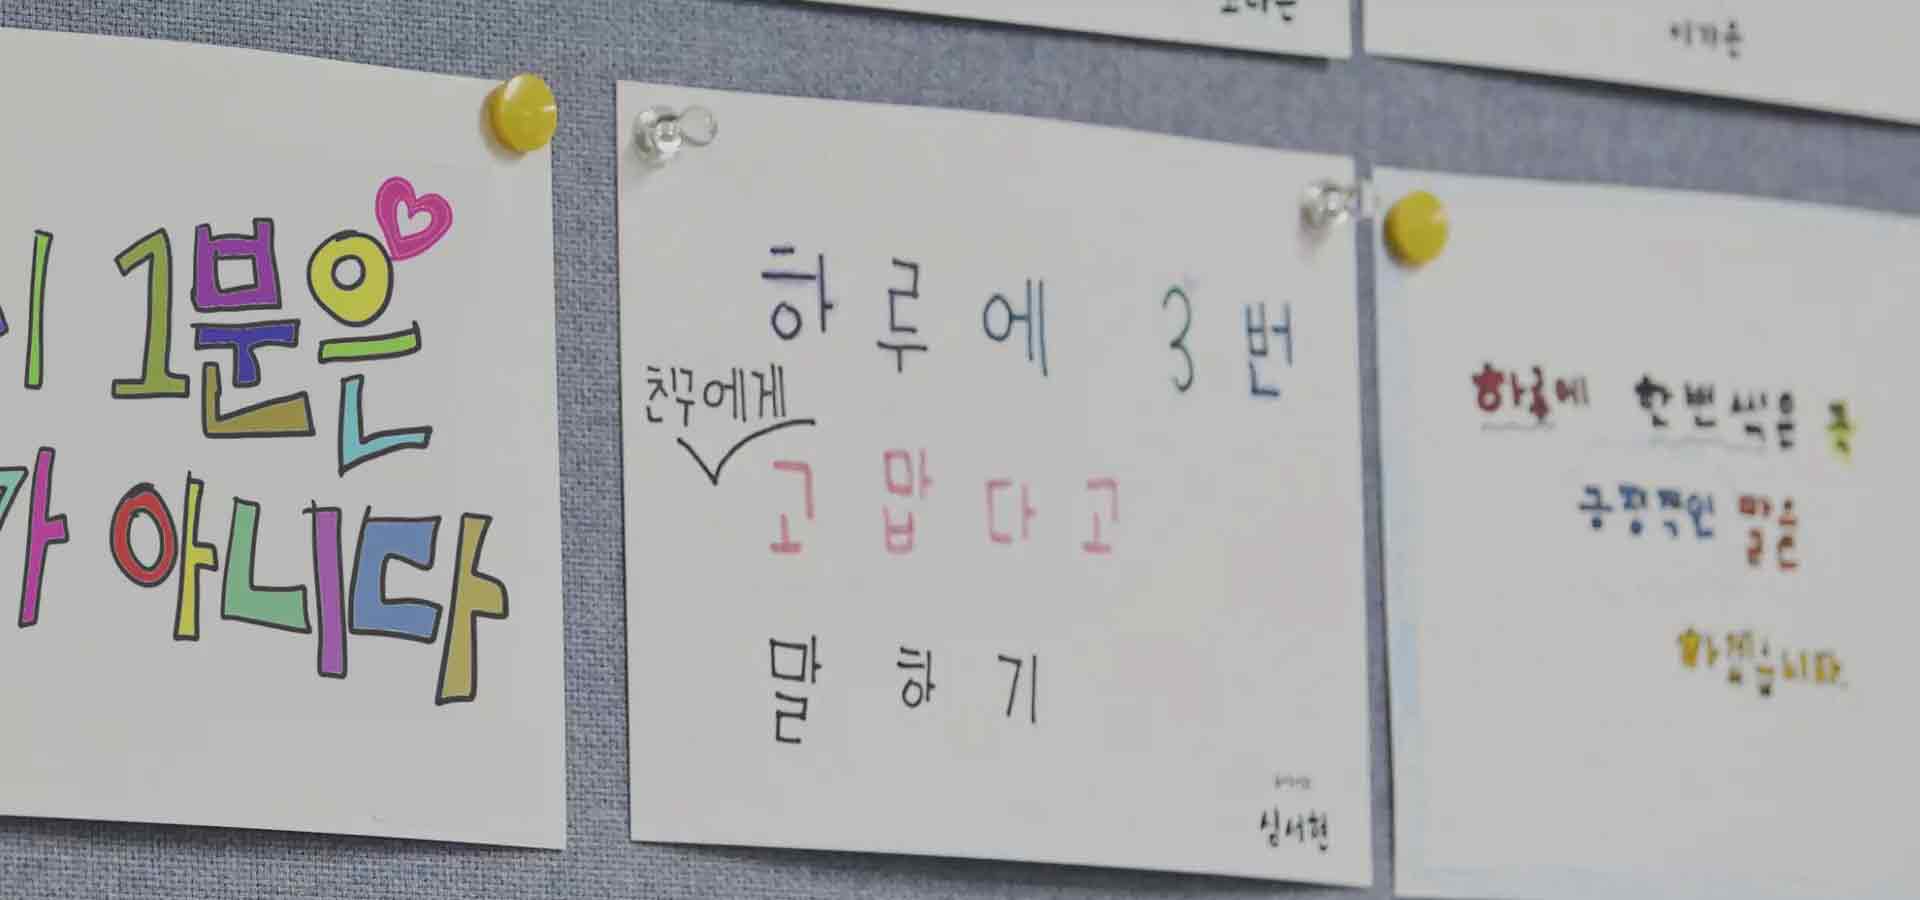 이가은
1분은
아니다
하루에 3번
친구에게
고맙다고
말하기
심서현
하루에 한번씩은 꼭
긍정적인 말을
하겠습니다.